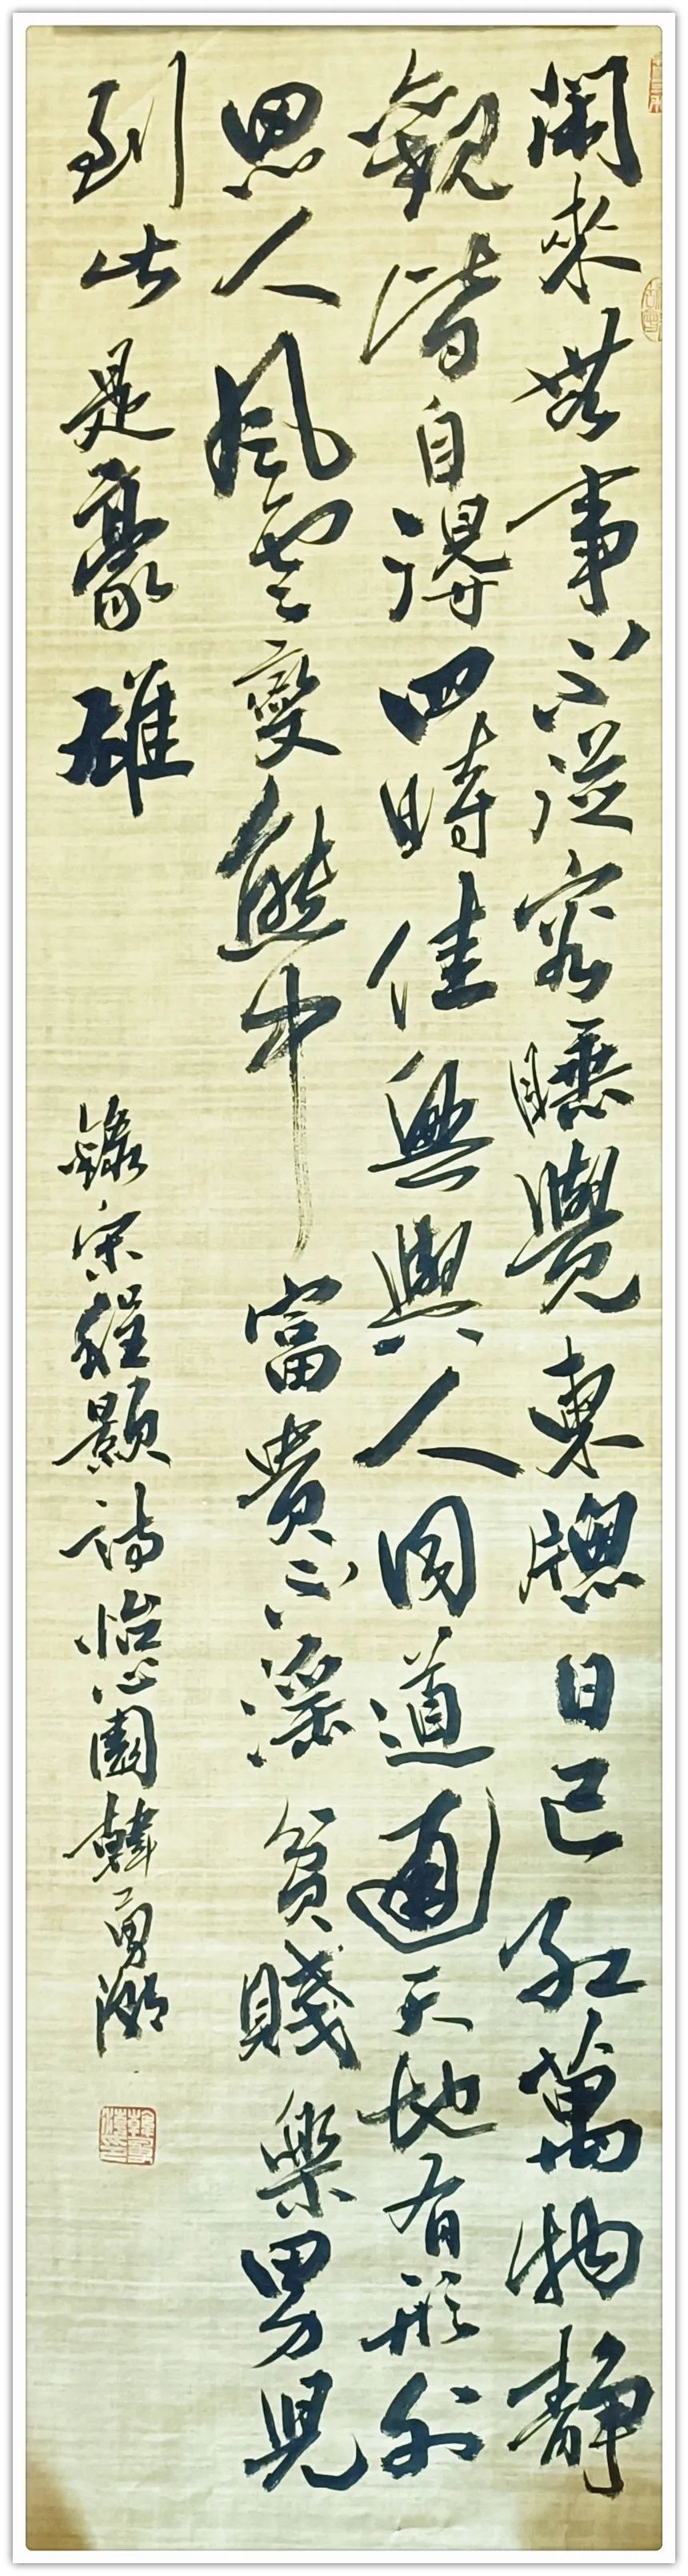 閑來無事不從容睡覺東牕日已紅萬物静
觀皆自得四時佳興與人同道通天地有形外
思入風雲變態中富貴不淫貧賤樂男兒
到此是豪雄
錄宋程顥詩怡心園韓勇